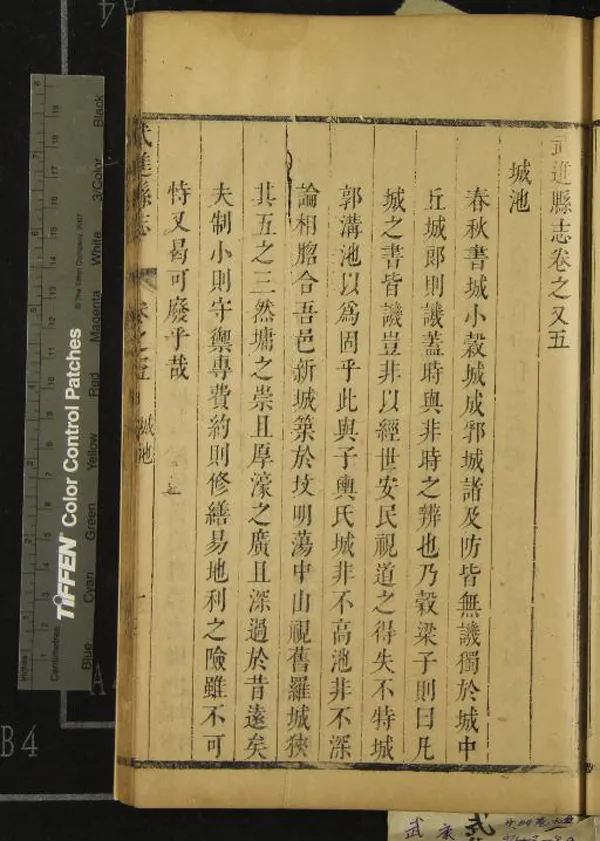 武進縣志卷之又五
城池
春秋書城小穀城成郛城諸及防皆無譏獨於城中
丘城郎則譏蓋時與非時之辨也乃穀梁子則曰凡
城之書皆譏豈非以經世安民視道之得失不特城
郭溝池以爲固乎此與子輿氏城非不高池非不深
論相脗合吾邑新城築於坟明蕩中山視舊羅城狹
其五之三然墉之崇且厚濠之廣且深過於昔遠矣
夫制小則守禦專費約則修繕易地利之險雖不可
恃又曷可廢乎哉
武進縣志
卷之五
城池
一
TIFFEN Color Control Patches
© The Tiffen Company, 2007
Inches
Centimetres
Blue
Cyan
Green
Yellow
Red
Magenta
White
3/Color
Black
B4
A4
武